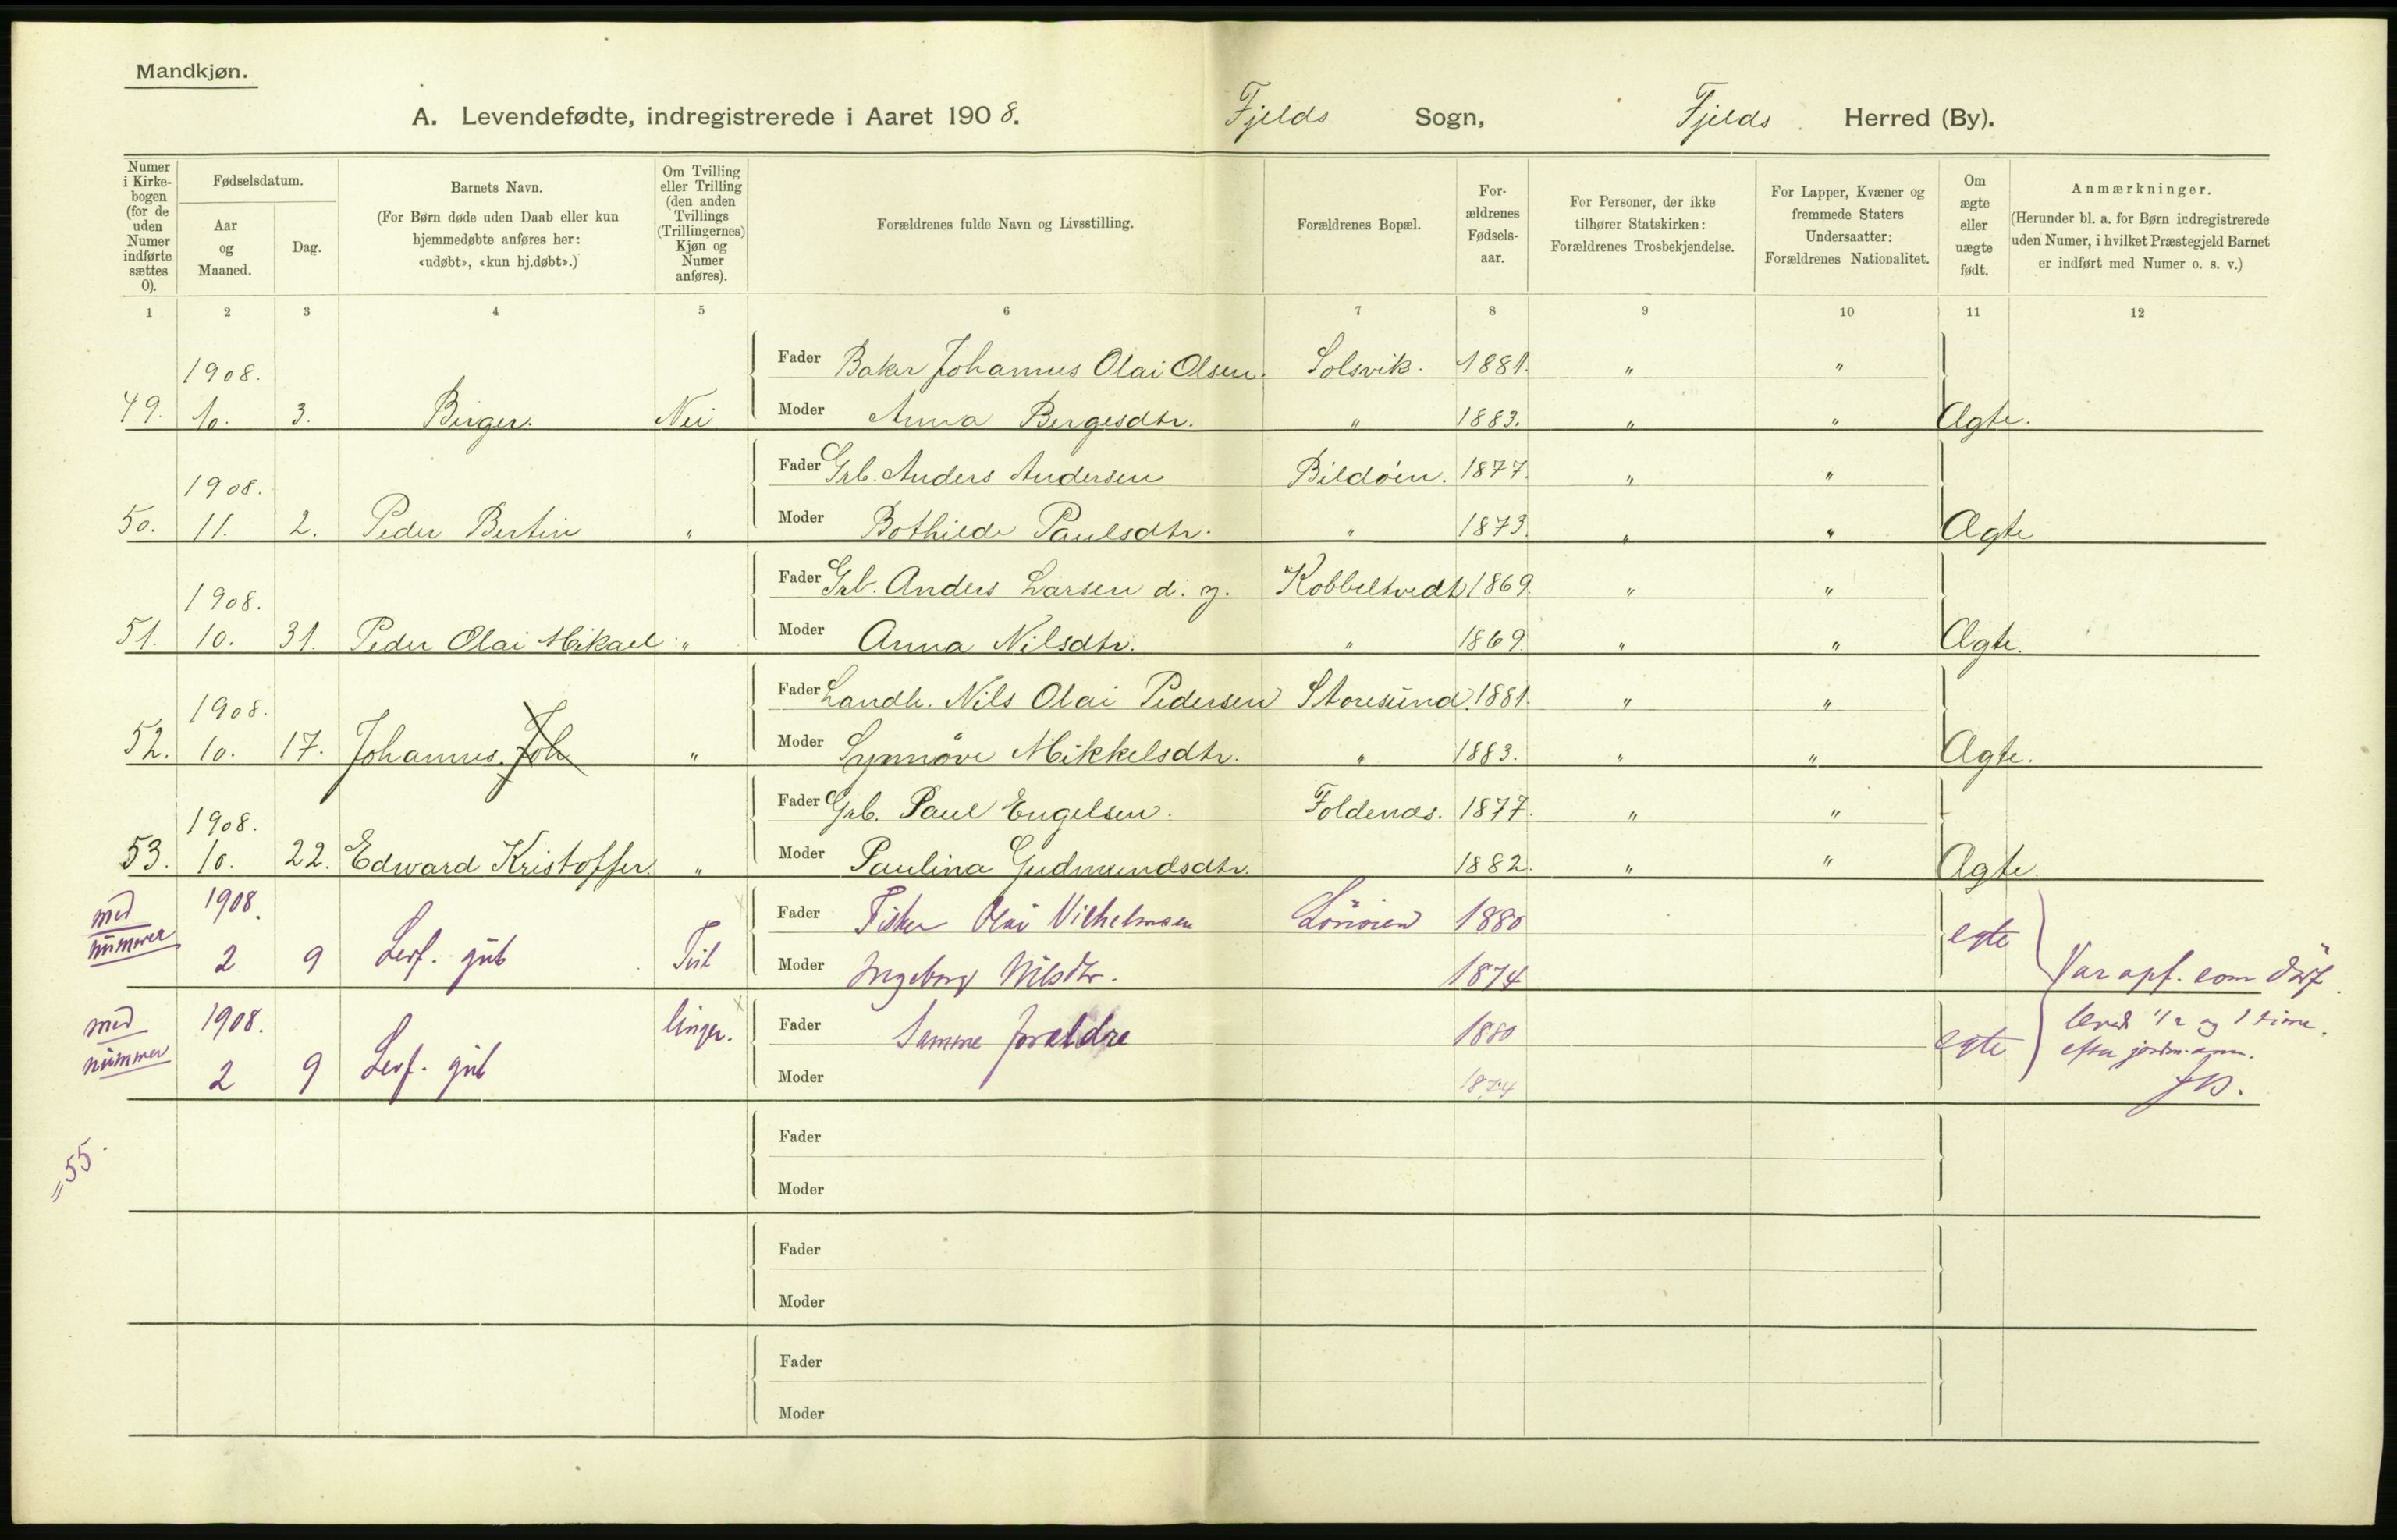 Mandkjøn.
A. Levendefødte, indregistrerede i Aaret 1908. Fjelds Sogn, Fjelds Herred (By).
Numer i Kirkebogen (for de uden Numer indførte sættes 0).
Fødselsdatum.
Aar og Maaned.
Dag.
Barnets Navn.
(For Børn døde uden Daab eller kun hjemmedøbte anføres her: «udøbt», «kun hj.døbt».)
Om Tvilling eller Trilling (den anden Tvillings (Trillingernes) Kjøn og Numer anføres).
Forældrenes fulde Navn og Livsstilling.
Forældrenes Bopæl.
Forældrenes Fødselsaar.
For Personer, der ikke tilhører Statskirken: Forældrenes Trosbekjendelse.
For Lapper, Kvæner og fremmede Staters Undersaatter: Forældrenes Nationalitet.
Om ægte eller uægte født.
Anmærkninger.
(Herunder bl. a. for Børn indregistrerede uden Numer, i hvilket Præstegjeld Barnet er indført med Numer o. s. v.)
1 2 3 4 5 6 7 8 9 10 11 12
1908. Fader Baker Johannes Olai Olsen. Solsvik. 1881. " "
49. 10. 3. Birger. Nei Moder Anna Bergesdtr. " 1883. " " Ægte.
1908. Fader Grb. Anders Andersen Bildøen. 1877. " "
50. 11. 2. Peder Bertin " Moder Bothilde Paulsdtr. " 1873. " " Ægte
1908. Fader Grb. Anders Larsen d. y. Kobbeltvedt 1869. " "
51. 10. 31. Peder Olai Mikael " Moder Anna Nilsdtr. " 1869. " " Ægte.
1908. Fader Landh. Nils Olai Pedersen Storesund. 1881. " "
52. 10. 17. Johannes. Joh " Moder Synnøve Mikkelsdtr. " 1883. " " Ægte.
1908. Fader Grb. Paul Engelsen. Foldenæs. 1877. " "
53. 10. 22. Edward Kristoffer. " Moder Paulina Gudmundsdtr. 1882. " " Ægte.
med 1908. Fader Fisker Olai Vilhelmsen 1880 egte
nummer 2 9 Levf. gut Tvil Moder Ingeborg Nilsdtr. 1874 Var opf. som dødf.
med 1908. linger. Fader Samme forældre 1880 levede 1/2 og 1 time.
nummer 2 9 Levf. gut Moder 1874 egte efter jordm. anm.
= 55.
Fader
Moder
Fader
Moder
Fader
Moder